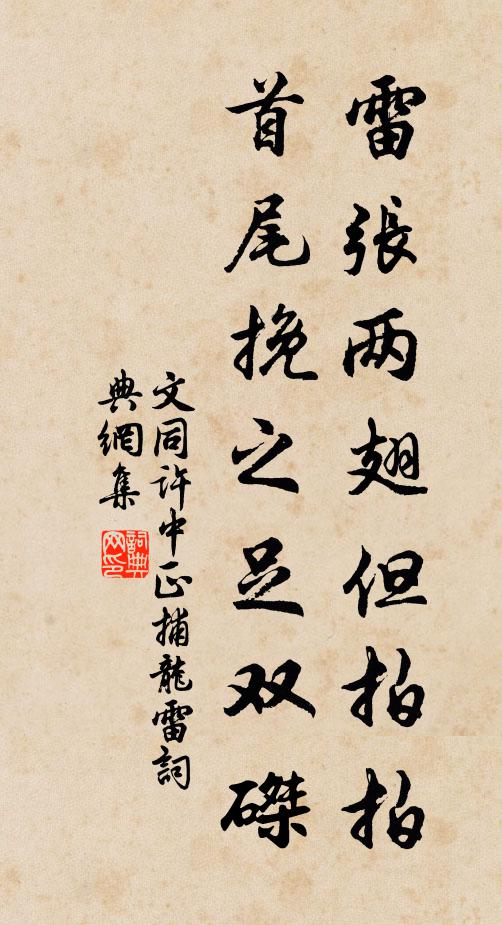 雷張两翅但拍拍
首尾挽之足双磔
文同许中正捕龍雷詞
典網集
詞典网印